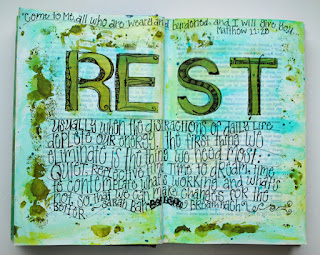 "Come to Me, all who are weary and burdened, and I will give you
Matthew 11:28
REST
Usually when the distractions of daily life
deplete our energy, the first thing we
eliminate is the thing we need most:
quiet, reflective time. Time to dream, time
to contemplate what's working and what's
not, so that we can make changes for the
better. Sarah Ban Breathnach